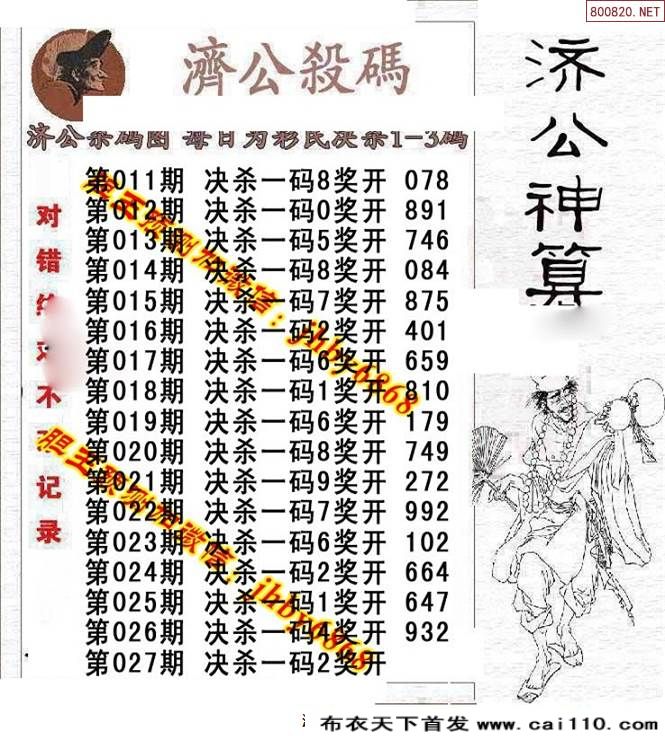 800820.NET
濟公殺碼
济公杀码图 每日为彩民决杀1-3码
济公神算
对错
不
记录
第011期 决杀一码8奖开 078
第012期 决杀一码0奖开 891
第013期 决杀一码5奖开 746
第014期 决杀一码8奖开 084
第015期 决杀一码7奖开 875
第016期 决杀一码2奖开 401
第017期 决杀一码6奖开 659
第018期 决杀一码1奖开 810
第019期 决杀一码6奖开 179
第020期 决杀一码8奖开 749
第021期 决杀一码9奖开 272
第022期 决杀一码7奖开 992
第023期 决杀一码6奖开 102
第024期 决杀一码2奖开 664
第025期 决杀一码1奖开 647
第026期 决杀一码4奖开 932
第027期 决杀一码2奖开
微信：jhby6868
微信：jhby6868
布衣天下首发 www.cai110.com